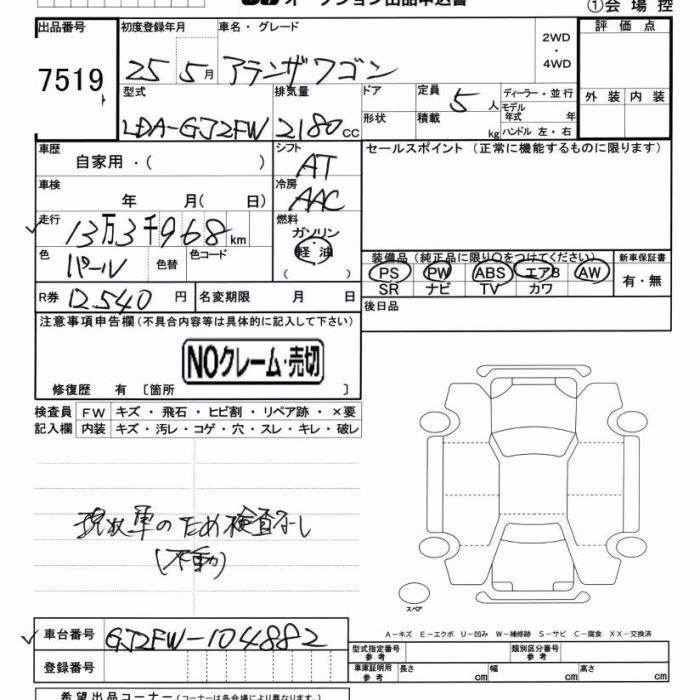 オークション出品申込書
①会場控
出品番号 初度登録年月 車名・グレード 評価点
7519 25 5月 アテンザワゴン 2WD・4WD
型式 排気量 ドア 定員 ディーラー・並行 外装 内装
LDA-GJ2FW 2180cc 形状 5人 モデル年式 年
積載 kg ハンドル 左・右
車歴 シフト セールスポイント(正常に機能するものに限ります)
自家用・( ) AT
車検 冷房
年 月( 日) AAC
走行 燃料
13万3千968km ガソリン・軽油
( )
色 色替 色コード 装備品(純正品に限り○をつけてください) 新車保証書
パール PS PW ABS エアB AW 有・無
SR ナビ TV カワ
R券 12,540円 名変期限 月 日 後日品
注意事項申告欄(不具合内容等は具体的に記入して下さい)
NOクレーム・売切
修復歴 有 〔箇所 〕
検査員 FW キズ・飛石・ヒビ割・リペア跡・×要
記入欄 内装 キズ・汚レ・コゲ・穴・スレ・キレ・破レ
現状車のため検査なし
(不動)
スペア
A-キズ E-エクボ U-凹み W-補修跡 S-サビ C-腐食 XX-交換済
車台番号 GJ2FW-104882
型式指定番号 参考 類別区分番号 参考
登録番号
車庫証明用 参考 長さ cm 幅 cm 高さ cm
希望出品コーナー(コーナーは各会場により異なります。)